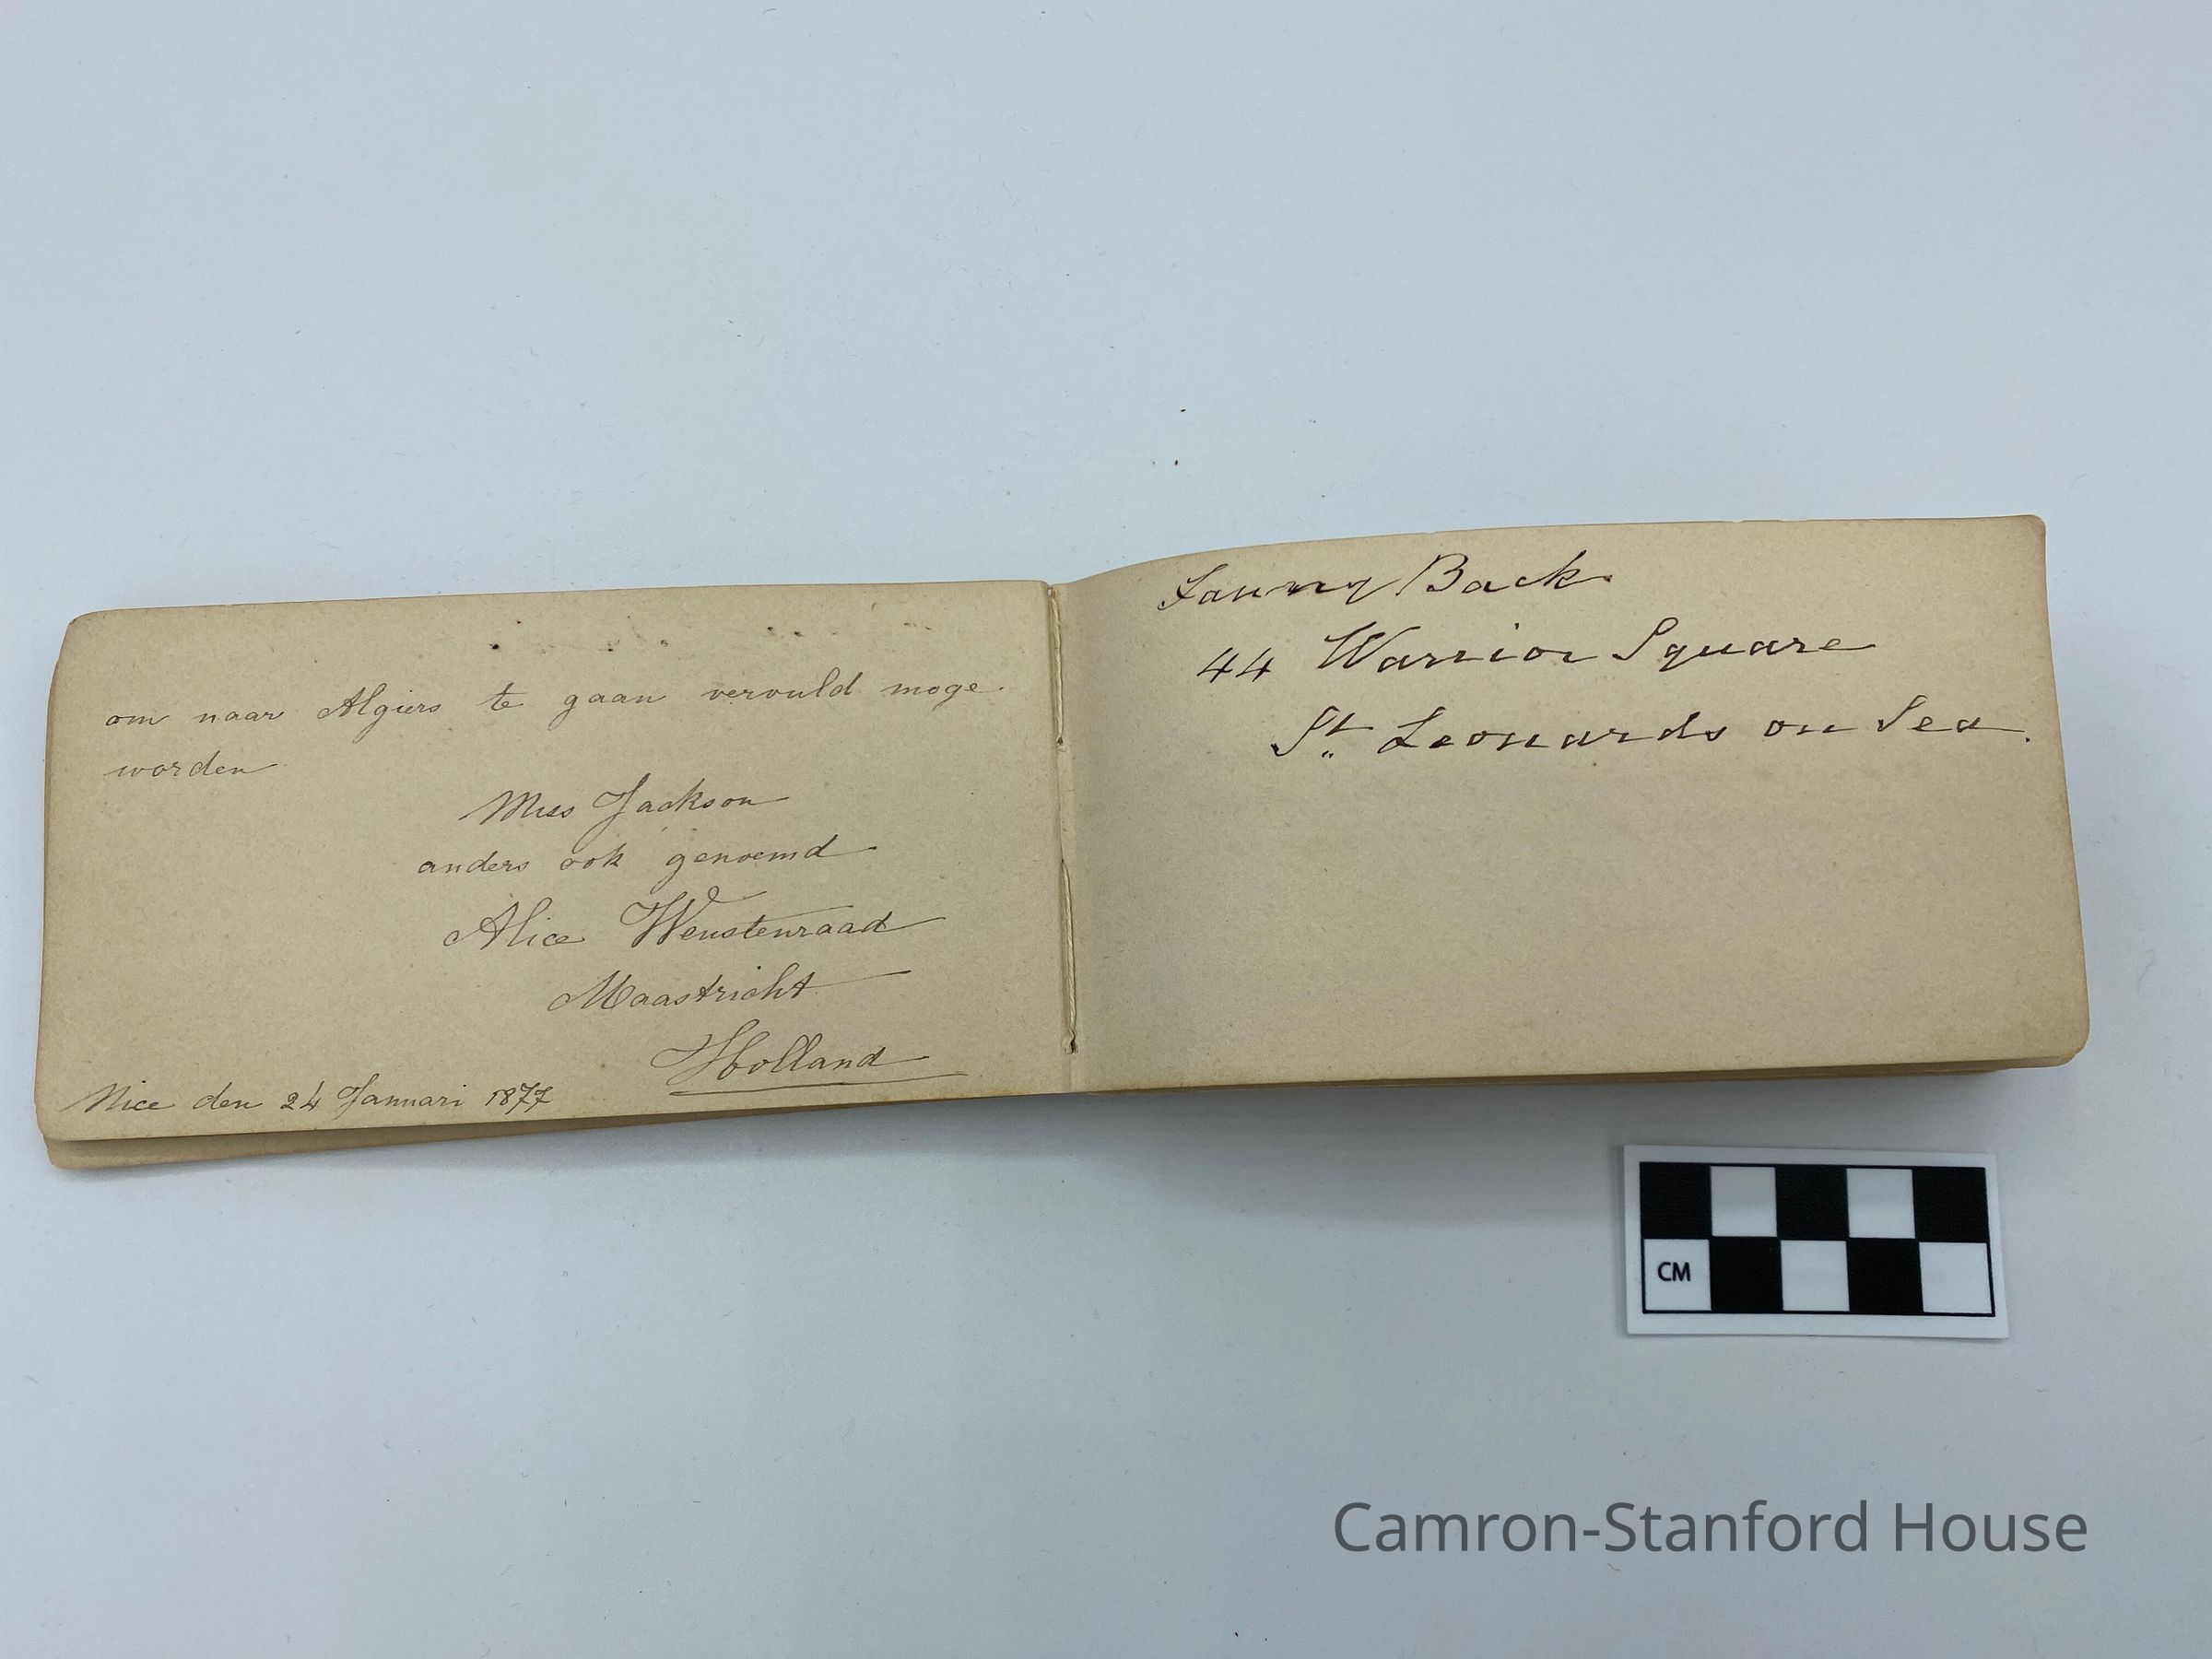 om naar Algiers te gaan vervuld moge
worden
Miss Jackson
anders ook genoemd
Alice Weustenraad
Maastricht
Holland
Nice den 24 Januari 1877
Fanny Back.
44 Warrior Square
St. Leonards on Sea.
CM
Camron-Stanford House